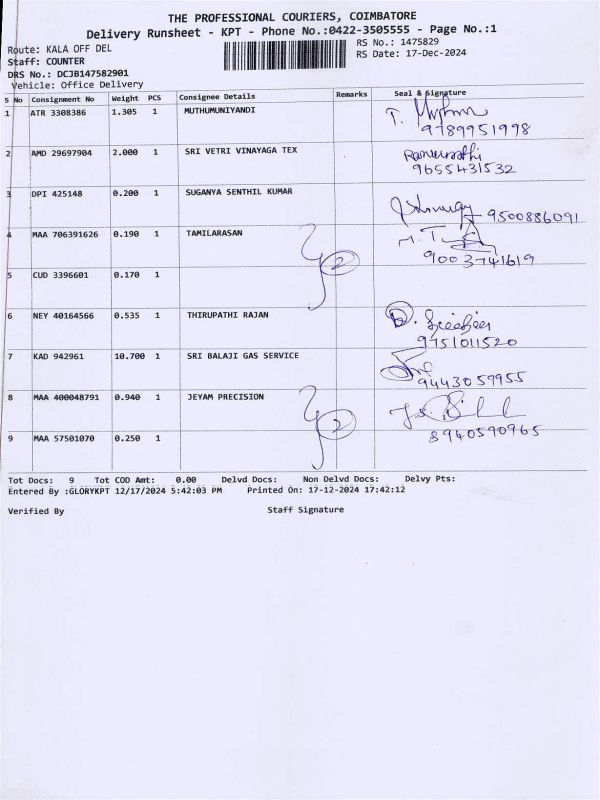 THE PROFESSIONAL COURIERS, COIMBATORE
Delivery Runsheet - KPT - Phone No.:0422-3505555 - Page No.:1
Route: KALA OFF DEL
RS No.: 1475829
Staff: COUNTER
RS Date: 17-Dec-2024
DRS No.: DCJB147582901
Vehicle: Office Delivery
S No Consignment No Weight PCS Consignee Details Remarks Seal & Signature
1 ATR 3308386 1.305 1 MUTHUMUNIYANDI
9789951998
2 AMD 29697904 2.000 1 SRI VETRI VINAYAGA TEX
9655431532
3 DPI 425148 0.200 1 SUGANYA SENTHIL KUMAR
9500886091
4 MAA 706391626 0.190 1 TAMILARASAN
2
9003741619
5 CUD 3396601 0.170 1
6 NEY 40164566 0.535 1 THIRUPATHI RAJAN
9751011520
7 KAD 942961 10.700 1 SRI BALAJI GAS SERVICE
9443059955
8 MAA 400048791 0.940 1 JEYAM PRECISION
2
8940590965
9 MAA 57501070 0.250 1
Tot Docs: 9 Tot COD Amt: 0.00 Delvd Docs: Non Delvd Docs: Delvy Pts:
Entered By :GLORYKPT 12/17/2024 5:42:03 PM Printed On: 17-12-2024 17:42:12
Verified By Staff Signature